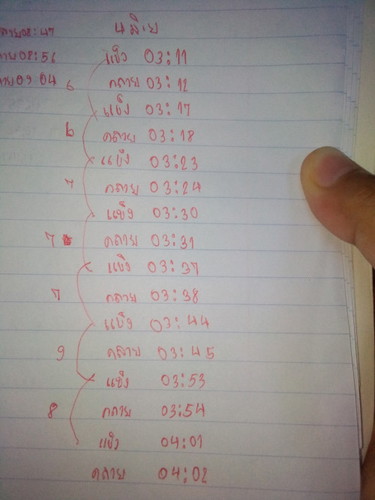 08:47
08:56
09 04
แข็ง 03:11
คลาย 03:12
6
แข็ง 03:17
คลาย 03:18
6
แข็ง 03:23
คลาย 03:24
7
แข็ง 03:30
คลาย 03:31
7
แข็ง 03:37
คลาย 03:38
7
แข็ง 03:44
คลาย 03:45
9
แข็ง 03:53
คลาย 03:54
8
แข็ง 04:01
คลาย 04:02